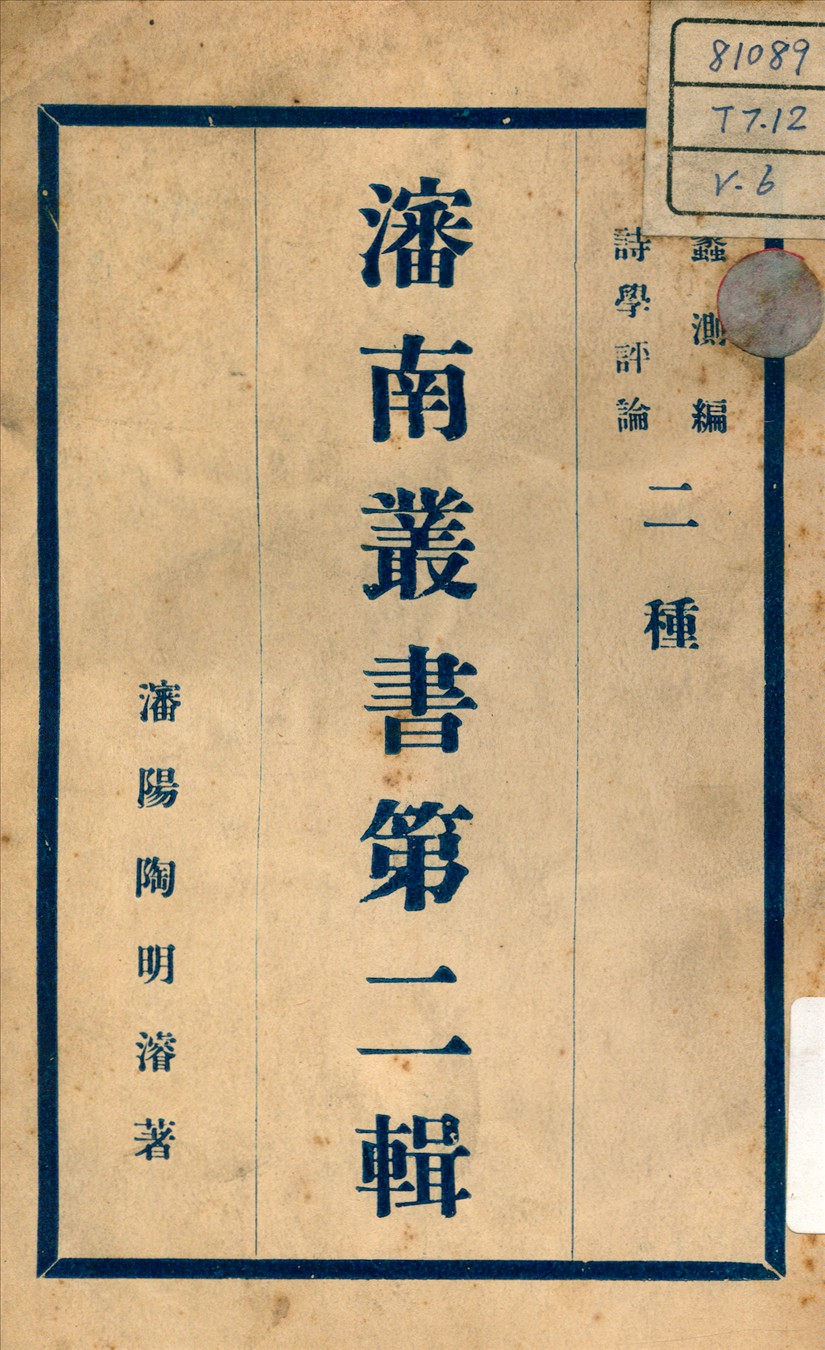 81089
T7.12
V.6
蠡測編
詩學評論
二種
瀋南叢書第二輯
瀋陽陶明濬著